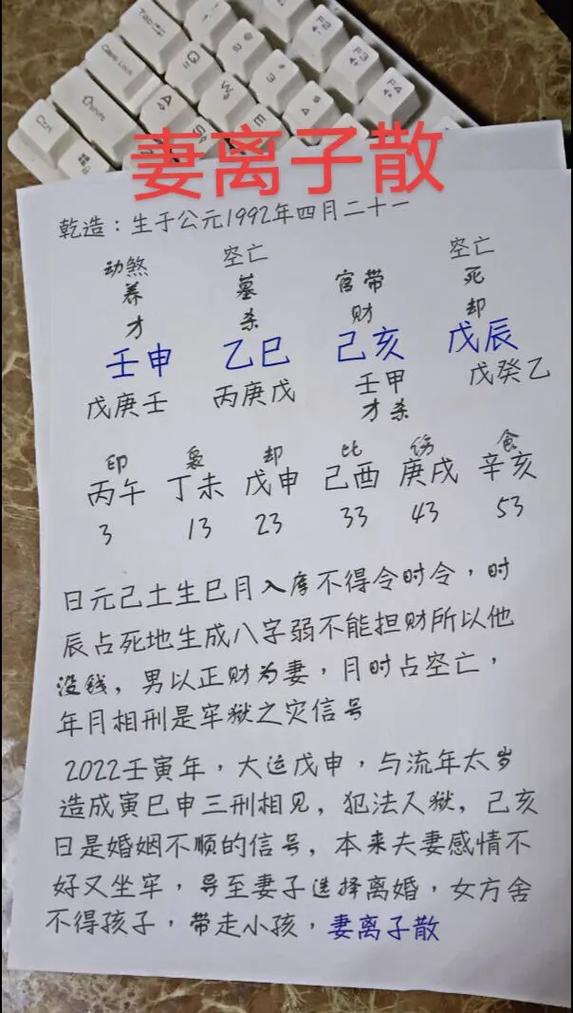 Tab
Caps Lock
Shift
Ctrl
Q
W
E
A
S
F2
F3
F4
妻离子散
乾造：生于公元1992年四月二十一
动煞 空亡 空亡
养 墓 官带 死
才 杀 财 却
壬申 乙巳 己亥 戊辰
戊庚壬 丙庚戊 壬甲 戊癸乙
才杀
印 枭 却 比 伤 食
丙午 丁未 戊申 己酉 庚戌 辛亥
3 13 23 33 43 53
日元己土生巳月入库不得令时令，时
辰占死地生成八字弱不能担财所以他
没钱，男以正财为妻，月时占空亡，
年月相刑是牢狱之灾信号
2022壬寅年，大运戊申，与流年太岁
造成寅巳申三刑相见，犯法入狱，己亥
日是婚姻不顺的信号，本来夫妻感情不
好又坐牢，导至妻子选择离婚，女方舍
不得孩子，带走小孩，妻离子散